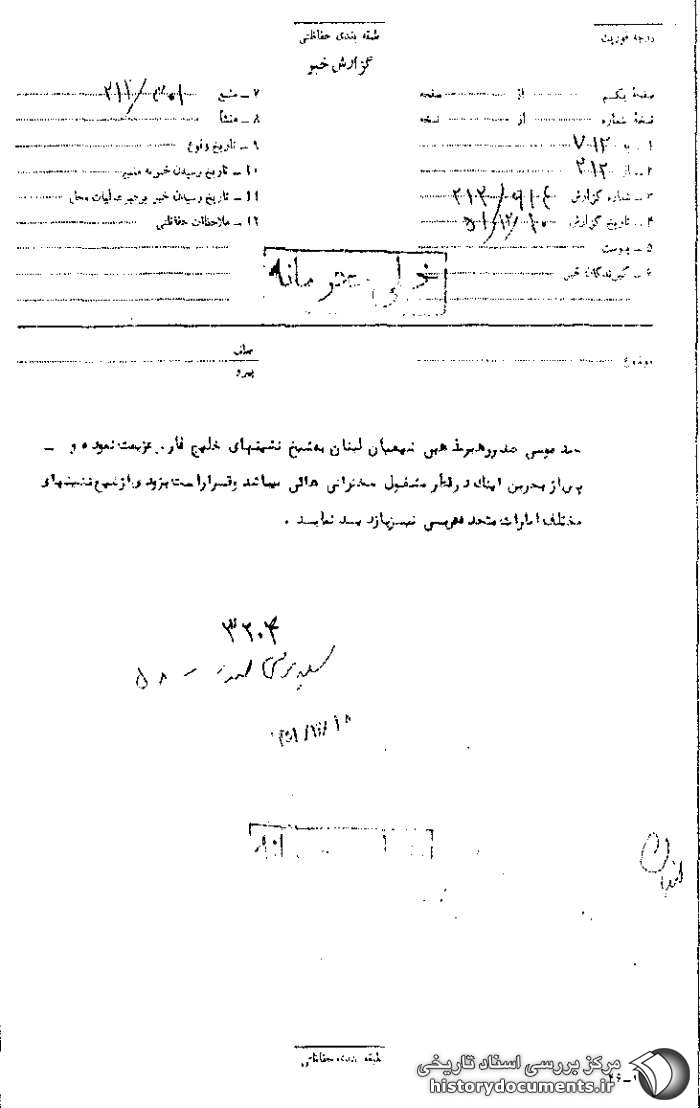 درجه فوریت
طبقه بندی حفاظتی
گزارش خبر
صفحهٔ یکم از صفحه
نسخهٔ شماره از نسخه
۱ـ به ۷۱۲
۲ـ از ۲۱۲
۳ـ شماره گزارش
۴ـ تاریخ گزارش ۵۱/۱۲/۱۰
۵ـ پیوست
۶ـ گیرندگان خبر
۷ـ منبع
۸ـ منشأ
۹ـ تاریخ وقوع
۱۰ـ تاریخ رسیدن خبر به منبع
۱۱ـ تاریخ رسیدن خبر برهبر عملیات محل
۱۲ـ ملاحظات حفاظتی
خیلی محرمانه
موضوع
عطف
پیرو
سید موسی صدر رهبر مذهبی شیعیان لبنان به شیخ نشینهای خلیج فارس عزیمت نموده و ـ
پس از بحرین اینک در قطر مشغول سخنرانی هائی میباشد و قرار است بزودی از شیخ نشینهای
مختلف امارات متحد عربی نیز بازدید نماید .
۳۲۰۴
طبقه بندی حفاظتی
مرکز بررسی اسناد تاریخی
historydocuments.ir